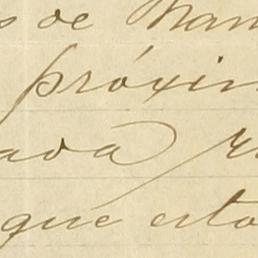 s de Man
próxim
ada
que esto